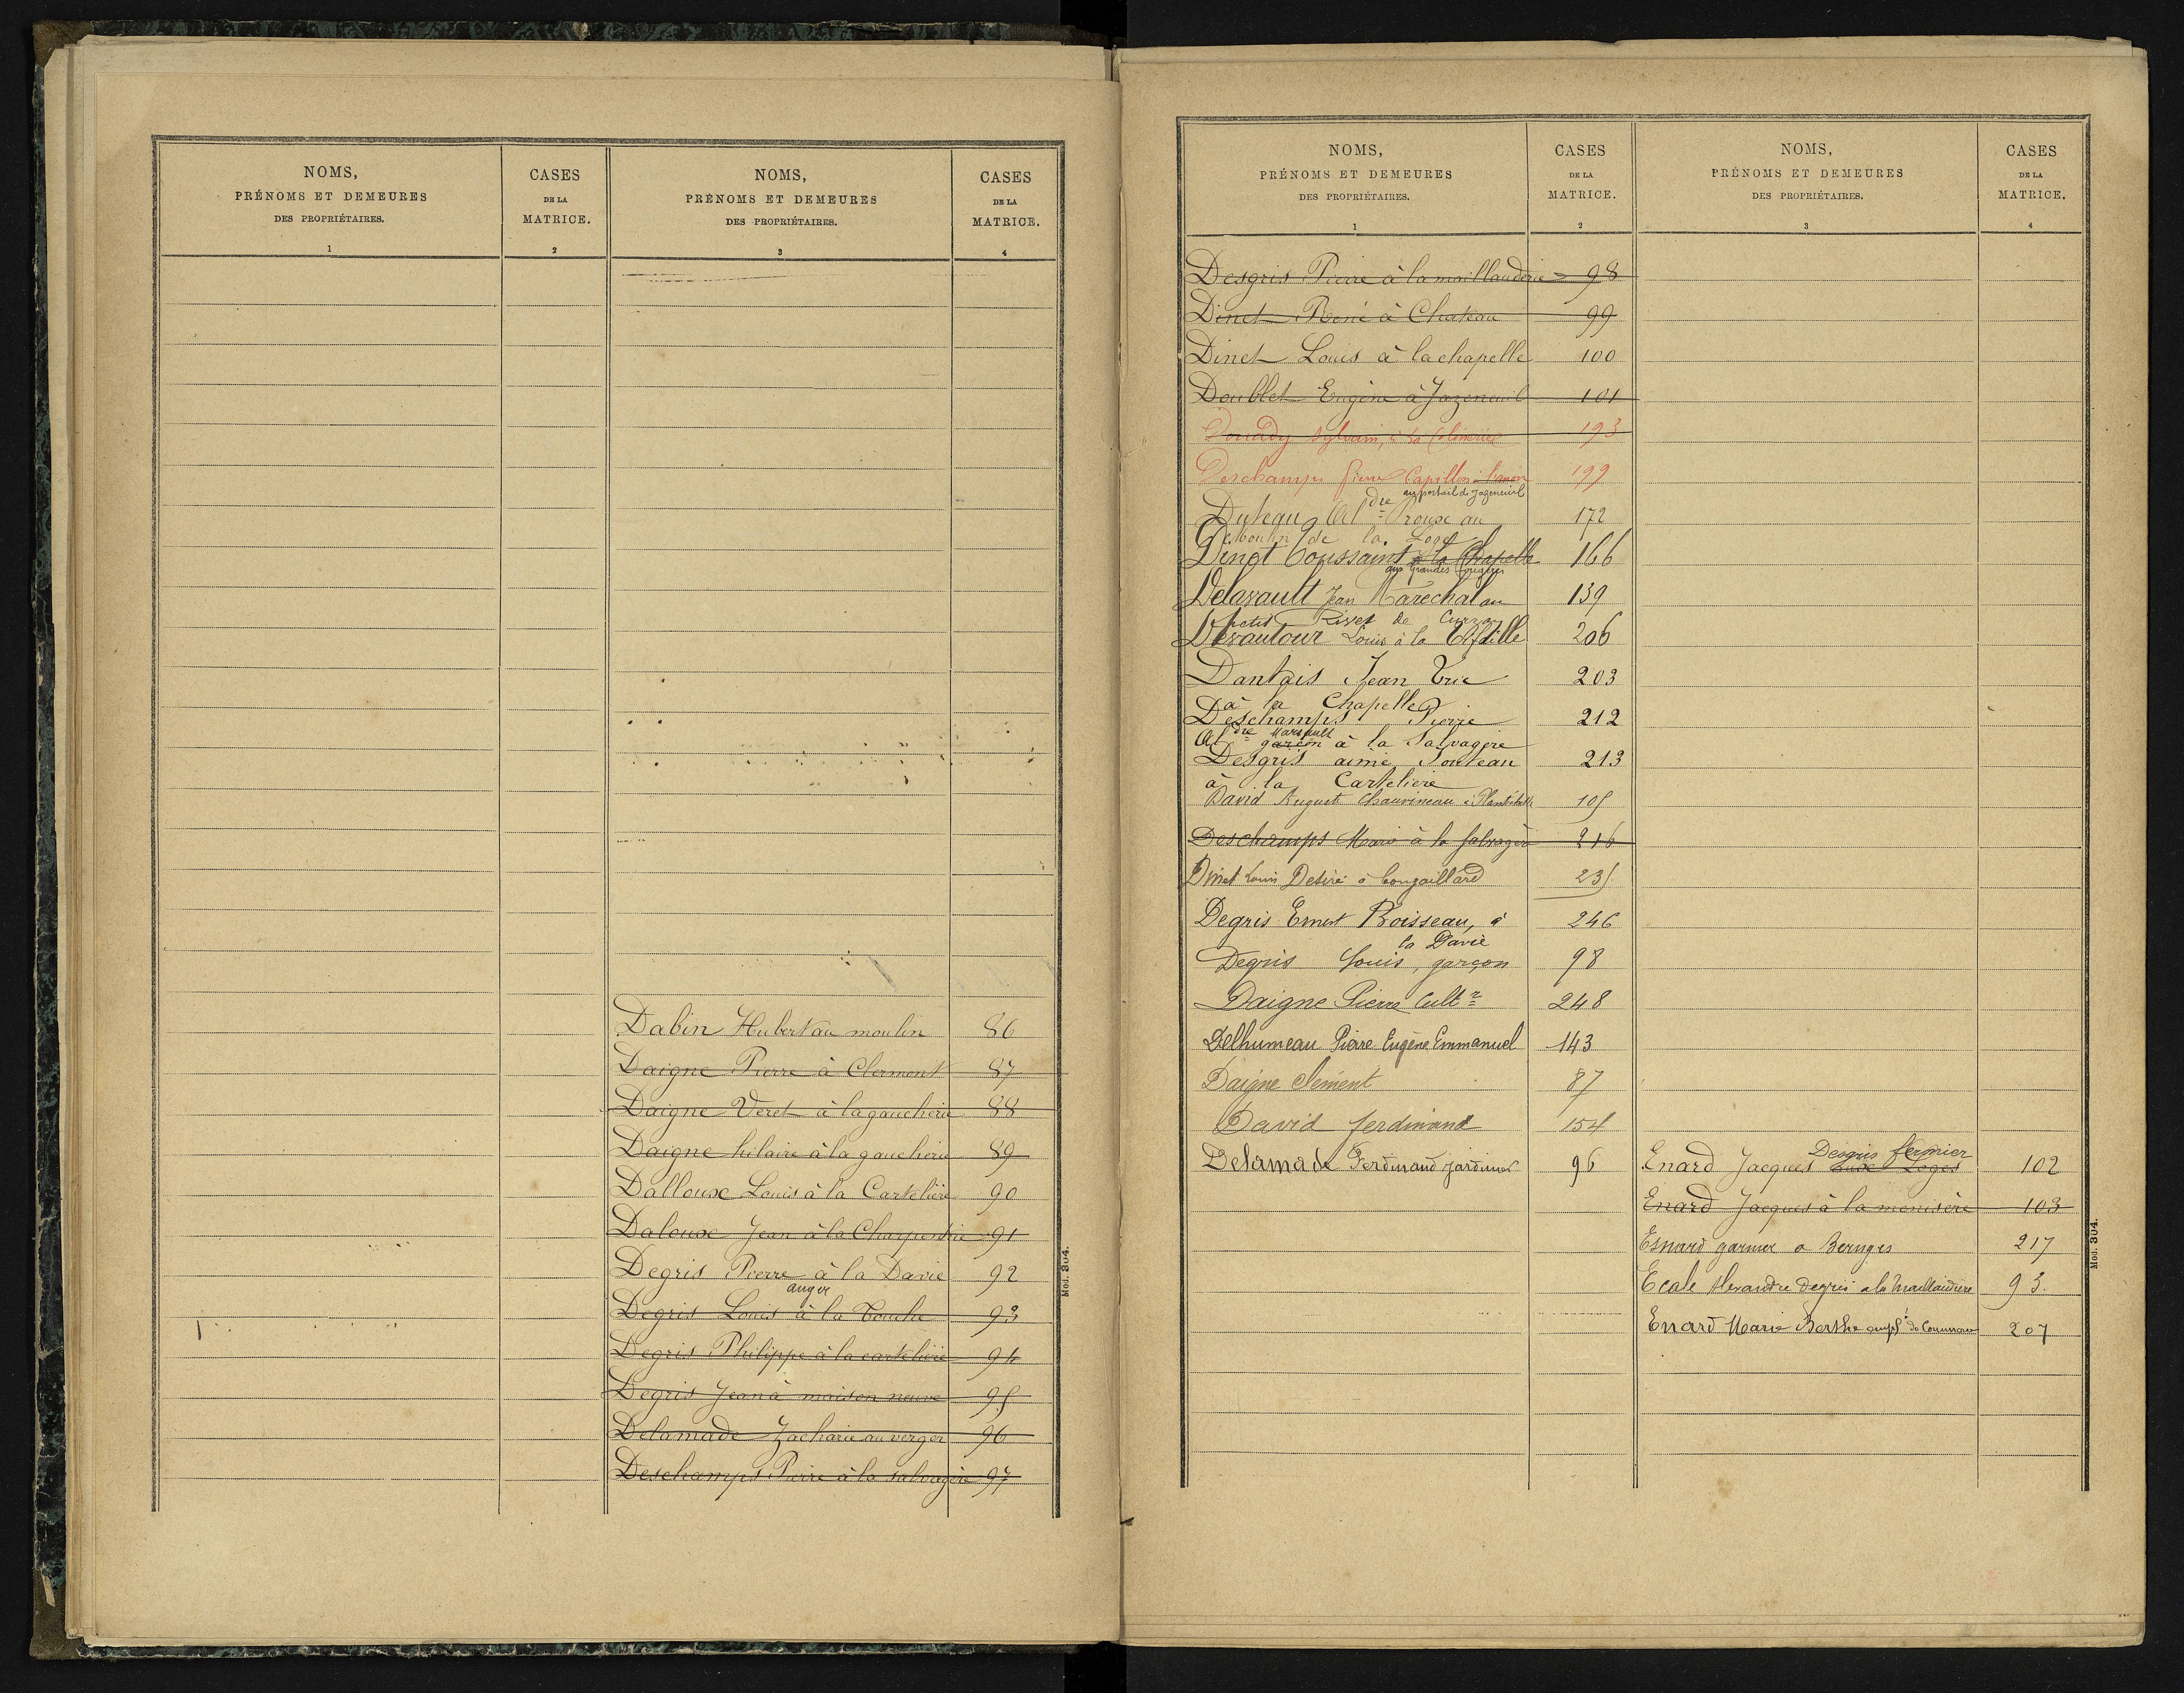 NOMS,
PRÉNOMS ET DEMEURES
DES PROPRIÉTAIRES.
1
CASES
DE LA
MATRICE.
2
NOMS,
PRÉNOMS ET DEMEURES
DES PROPRIÉTAIRES.
3
CASES
DE LA
MATRICE.
4
Dabin Hubert au moulin 86
Daigne Pierre à Clermont 87
Daigne Veret à la gaucherie 88
Daigne hilaire à la gaucherie 89
Dalloux Louis à la Cartelière 90
Daloux Jean à la Charpentrie 91
Degris Pierre à la Davie 92
auger
Degris Louis à la Touche 93
Degris Philippe à la cartelière 94
Degris Jean à maison neuve 95
Delamade Zacharie au verger 96
Deschamps Pierre à la salvagère 97
Mod. 304.
NOMS,
PRÉNOMS ET DEMEURES
DES PROPRIÉTAIRES.
1
CASES
DE LA
MATRICE.
2
NOMS,
PRÉNOMS ET DEMEURES
DES PROPRIÉTAIRES.
3
CASES
DE LA
MATRICE.
4
Desgris Pierre à la maillauderie 98
Dinet René à Chateau 99
Dinet Louis à la chapelle 100
Doublet Eugène à Jazeneuil 101
Douady Sylvain, à la 193
Deschamps Pierre Capillon 199
au portail de Jazeneuil
Duteau Al dre Proux au 172
moulin de la Loge
Dinet Toussaint à la Chapelle 166
aux grandes fougères
Delavault Jean Maréchal au 139
petit Rivet de Curzay
Devautour Louis à la 206
Dantais Jean Vue 203
à la Chapelle
Deschamps Pierre 212
Al dre Marsault
garçon à la Salvagère
Desgris aimé Pouteau 213
à la Cartelière
David August Chauvineau à 105
Deschamps Marie à la Salvagère 216
Dinet Louis Désiré à Congaillard 235
Degris Ernest Boisseau, à 246
la Davie
Degris Louis, garçon 98
Daigne Pierre Cult r 248
Delhumeau Pierre Eugène Emmanuel 143
Daigne Clément 87
David ferdinand 154
Delamade Ferdinand jardinier 96
Desgris fermier
Enard Jacques aux Loges 102
Enard Jacques à la menisère 103
Esnard garnier a Beruges 217
Ecale Alexandre Degris a la Maillaudière 93
Enard Marie Berthe empl de Commerce 207
Mod. 304.